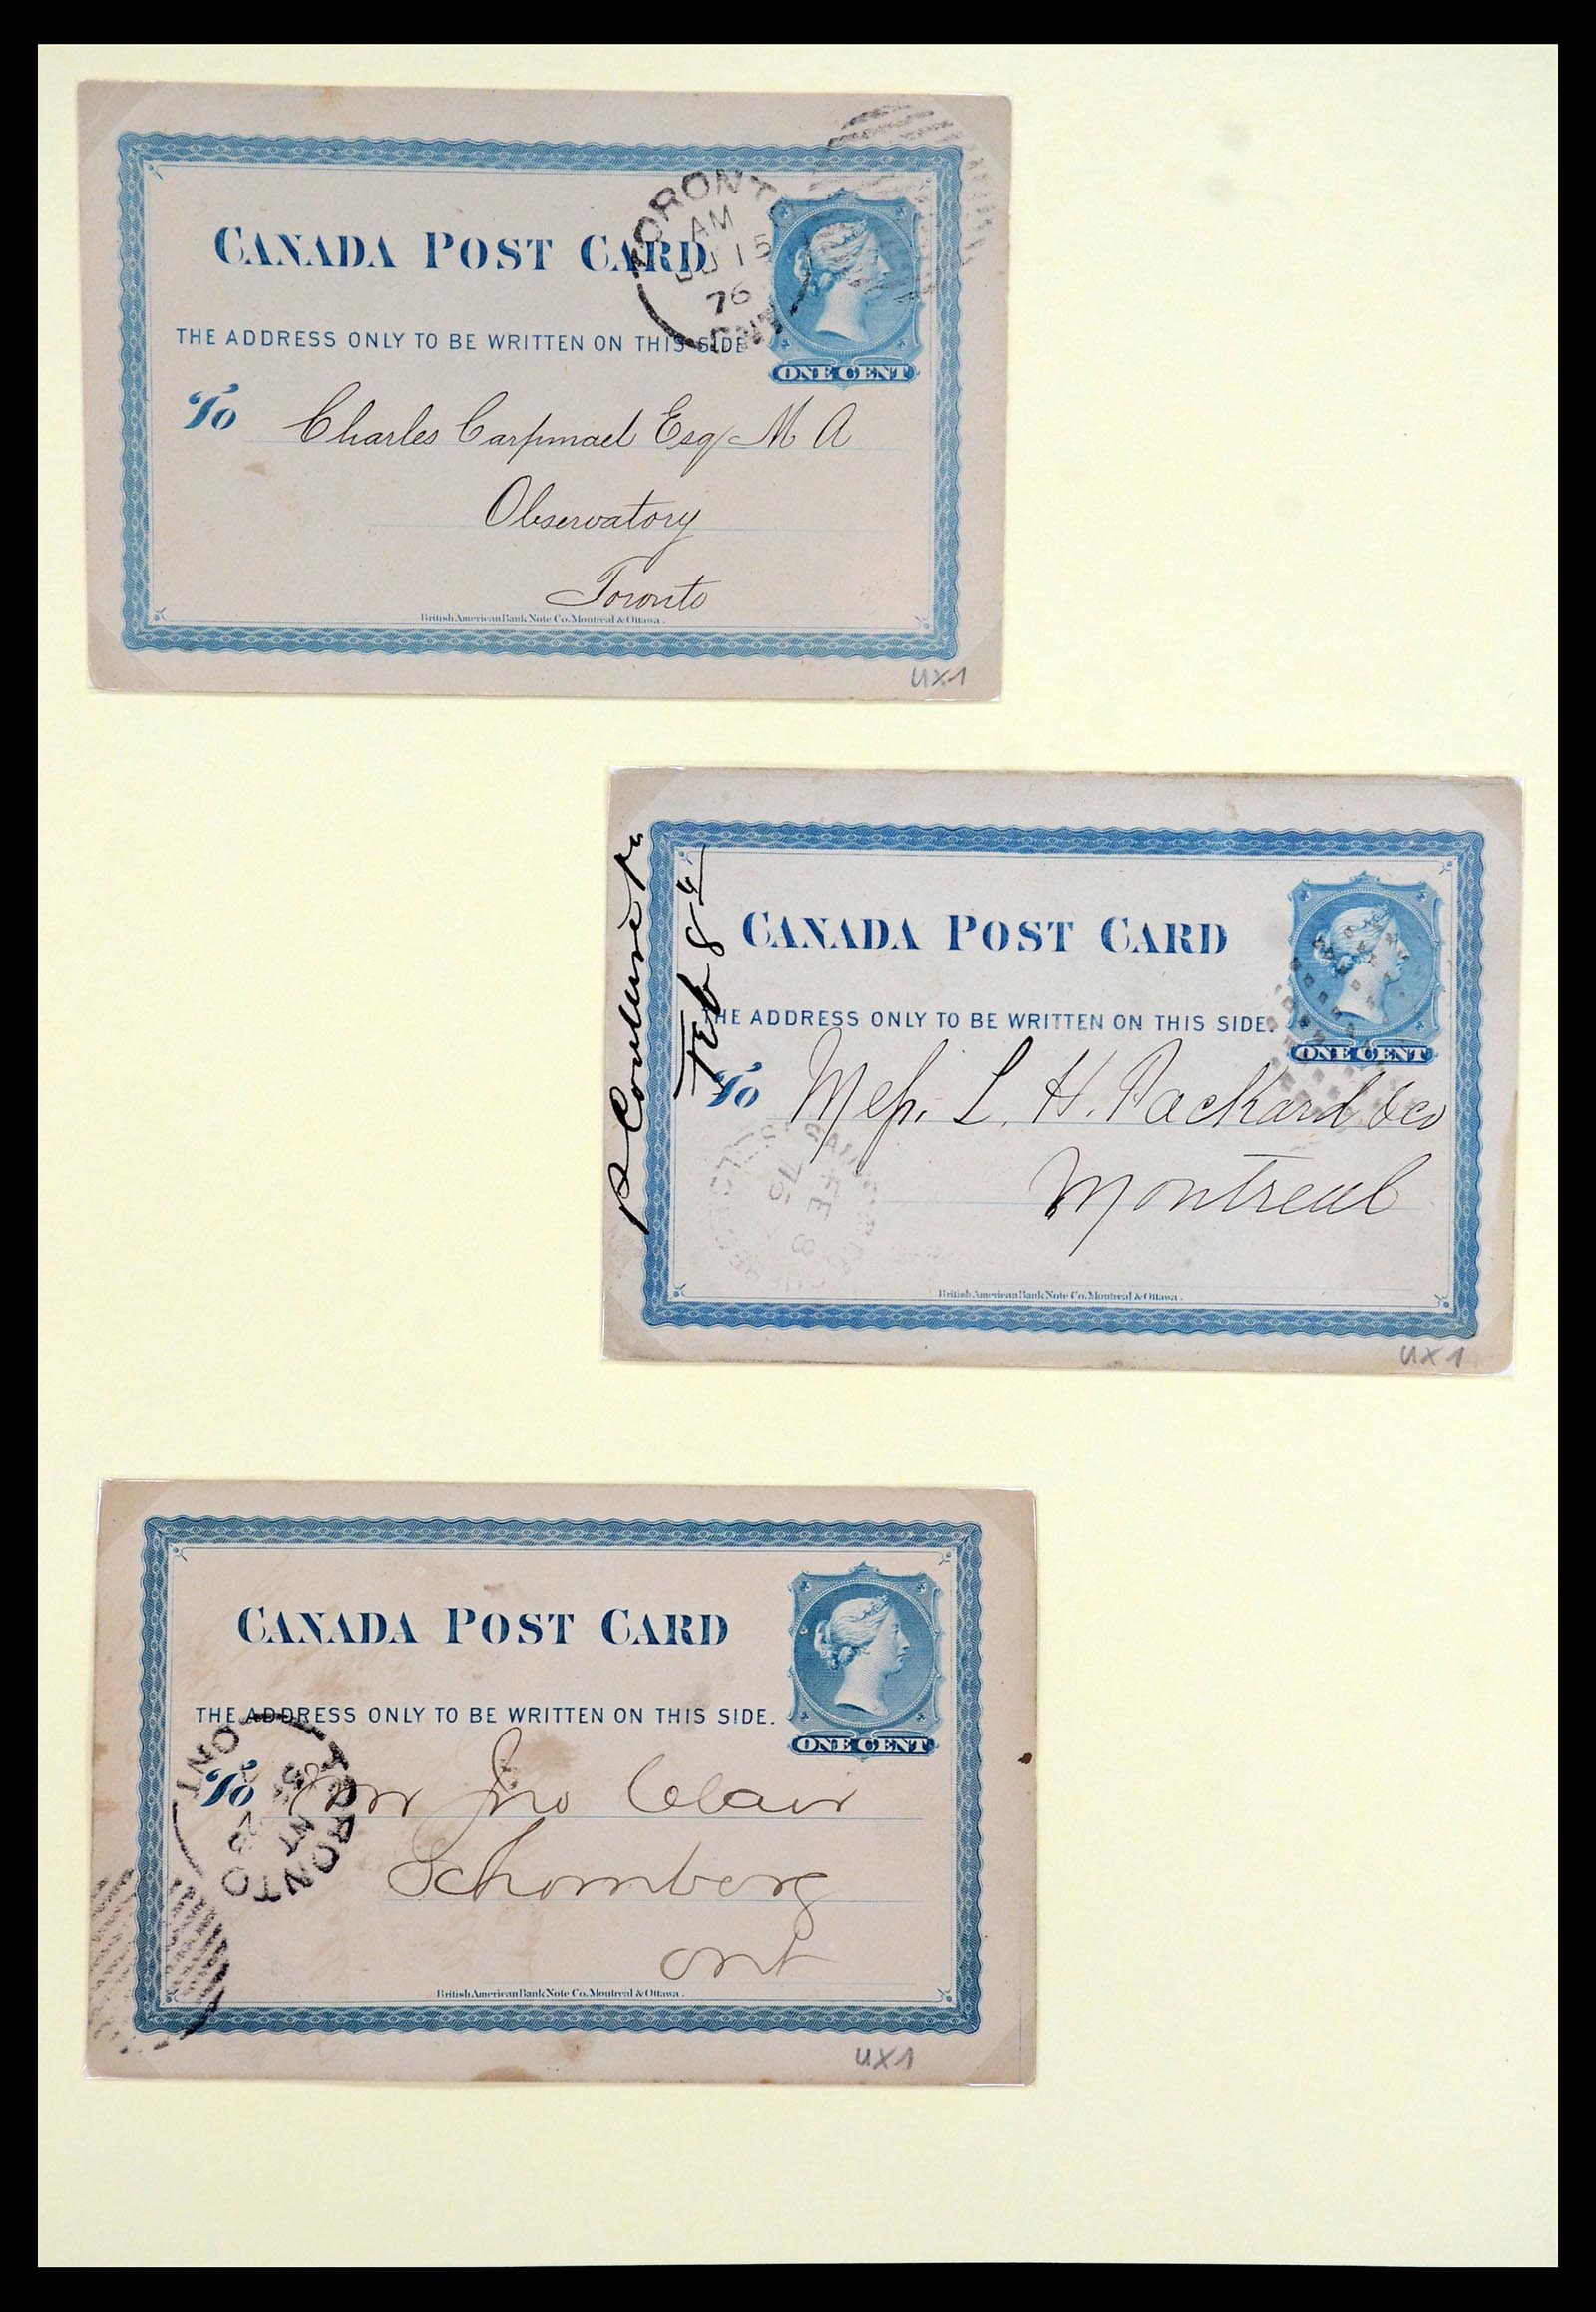 CANADA POST CARD
TORONTO
AM
JU 15
76
ONT
THE ADDRESS ONLY TO BE WRITTEN ON THIS SIDE
ONE CENT
To Charles Carpmael Esq M A
Observatory
Toronto
British American Bank Note Co. Montreal & Ottawa.
UX1
Feb 8
CANADA POST CARD
THE ADDRESS ONLY TO BE WRITTEN ON THIS SIDE.
ONE CENT
To Mess. L. H. Packard & Co
Montreal
FE 8
76
British American Bank Note Co. Montreal & Ottawa.
UX1
CANADA POST CARD
THE ADDRESS ONLY TO BE WRITTEN ON THIS SIDE.
ONE CENT
TORONTO
ONT
To Mr Jno Clair
Schomberg
Ont
British American Bank Note Co. Montreal & Ottawa.
UX1